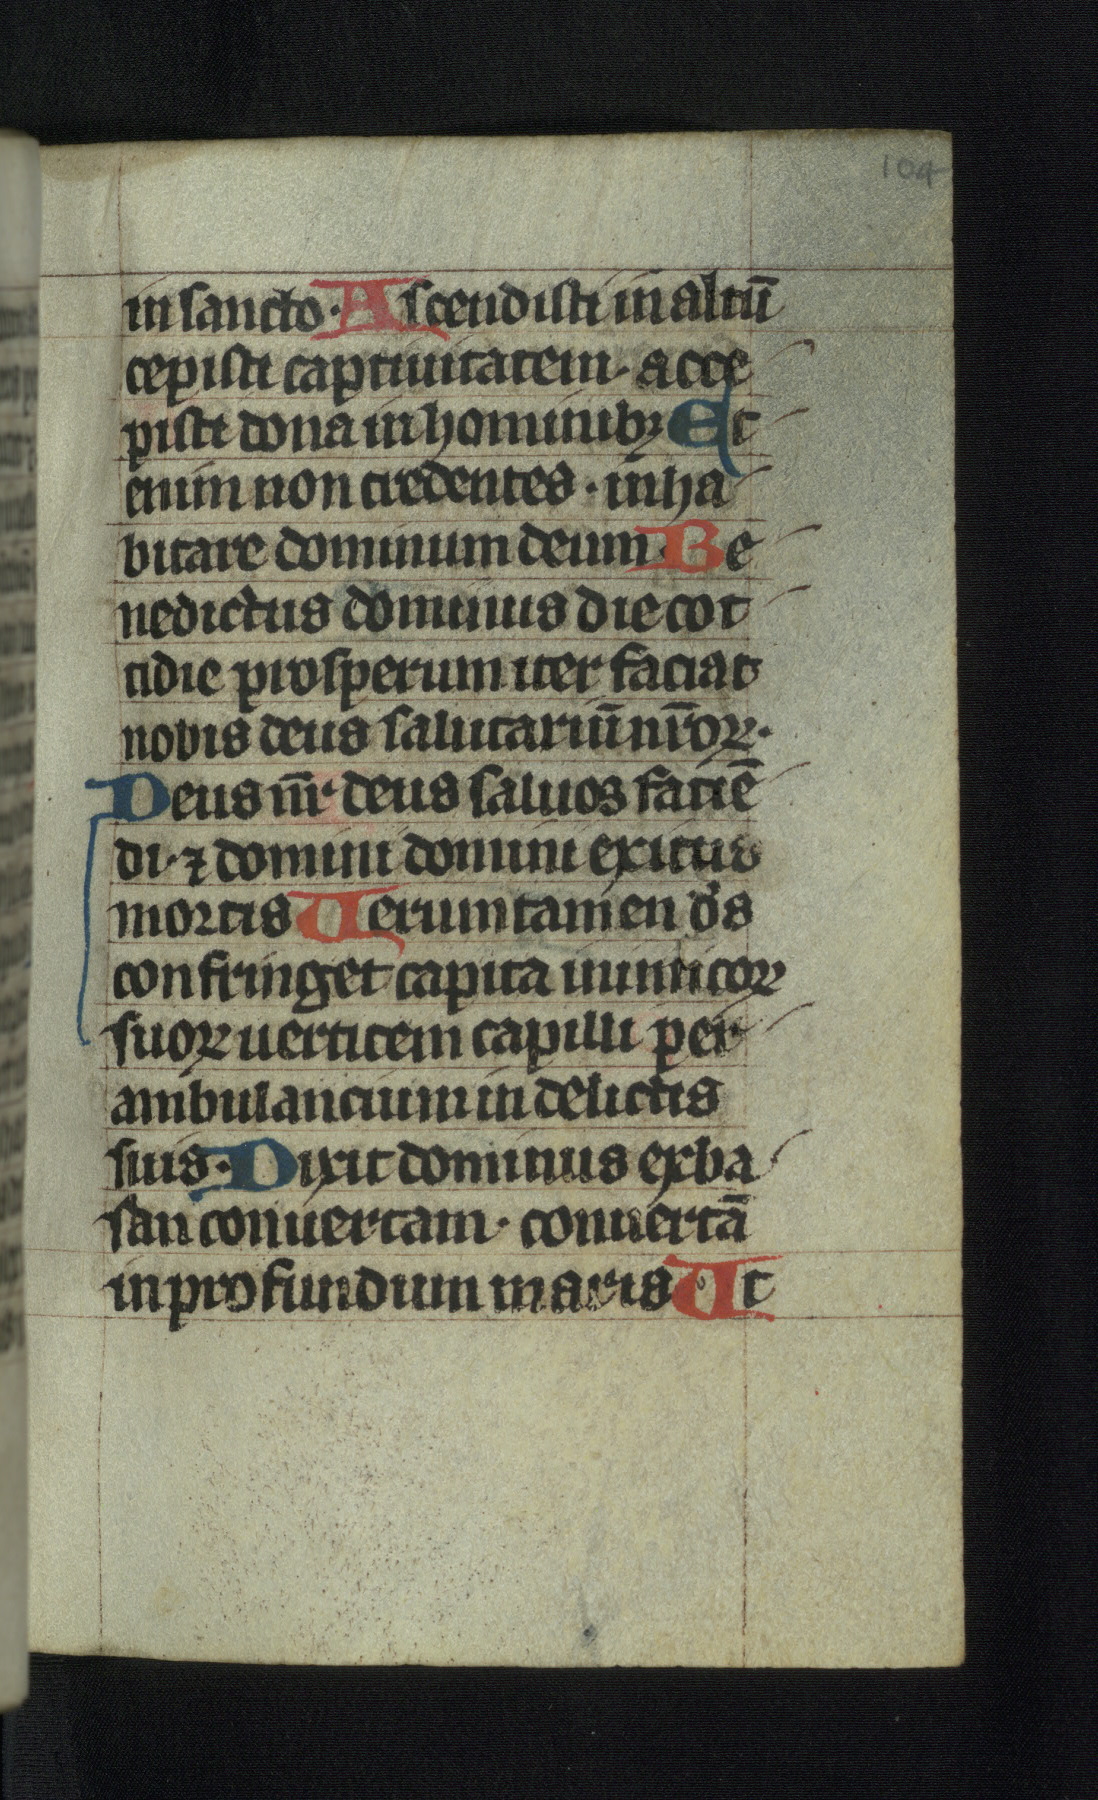 104
in sancto · Ascendisti in altū
cepisti captiuitatem · acce
pisti dona in hominibꝫ Et
enim non credentes · inha
bitare dominum deum · Be
nedictus dominus die cot
tidie prosperum iter faciat
nobis deus salutariū nr̄oꝝ ·
Deus nr̄ deus saluos faciē
di · ⁊ domini domini exitus
mortis Ueruntamen d̄s
confringet capita inimicoꝝ
suoꝝ uerticem capilli per
ambulancium in delictis
suis · Dixit dominus ex ba
san conuertam · conuertā
in profundum maris Ut